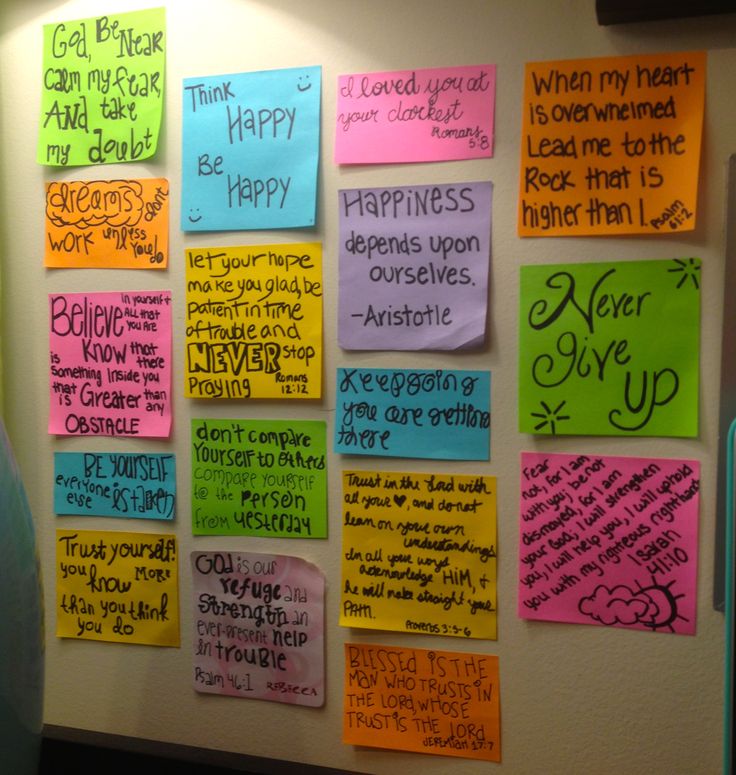 God, Be Near
calm my fear,
AND take
my doubt
dreams don't
work unless you do
Believe in yourself +
ALL that
you Are
Know that
there
is
something Inside you
that is Greater than
any
OBSTACLE
BE YOURSELF
everyone
else is taken
Trust yourself!
you Know MORE
than you think
you do
Think
Happy
Be
Happy
let your hope
make you glad, be
patient in time
of trouble and
NEVER stop
Praying Romans
12:12
don't compare
yourself to others
COMPARE YOURSELF
to the PERSON
from yesterday
God is our
refuge and
Strength an
ever-present help
in trouble
Psalm 46:1 REBECCA
I loved you at
your darkest
Romans
5:8
Happiness
depends upon
ourselves.
-Aristotle
Keep going
you are getting
there
Trust in the Lord with
all your ♥, and do not
lean on your own
understandings
In all your ways
acknowledge HIM, +
he will make straight your
PATH.
Proverbs 3:5-6
BLESSED IS THE
MAN WHO TRUSTS IN
THE LORD, WHOSE
TRUST IS THE LORD
JEREMIAH 17:7
When my heart
is overwhelmed
Lead me to the
Rock that is
higher than I. Psalm
61:2
Never
give
up
Fear
not, for I am
with you; be not
dismayed, for I am
your God; I will strengthen
you, I will help you, I will uphold
you with my righteous right hand
Isaiah
41:10